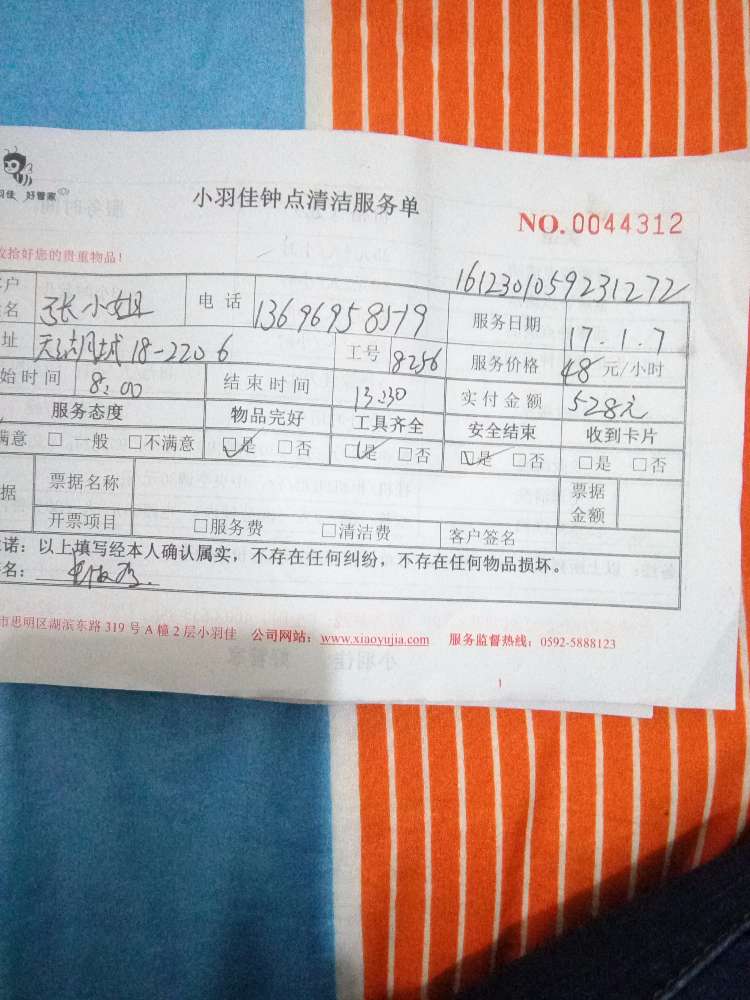 羽佳 好管家
小羽佳钟点清洁服务单
NO. 0044312
收拾好您的贵重物品！
1612301059231272
户名 张小姐 电话 13696958519 服务日期 17.1.7
址 天湖城18-2206 工号 8256 服务价格 48元/小时
始时间 8:00 结束时间 13:30 实付金额 528元
服务态度 物品完好 工具齐全 安全结束 收到卡片
满意 □ 一般 □不满意 ☑是 □否 ☑是 □否 ☑是 □否 □是 □否
据 票据名称 票据金额
开票项目 □服务费 □清洁费 客户签名
诺：以上填写经本人确认属实，不存在任何纠纷，不存在任何物品损坏。
名：
市思明区湖滨东路 319 号 A 幢 2 层小羽佳 公司网站：www.xiaoyujia.com 服务监督热线：0592-5888123
1